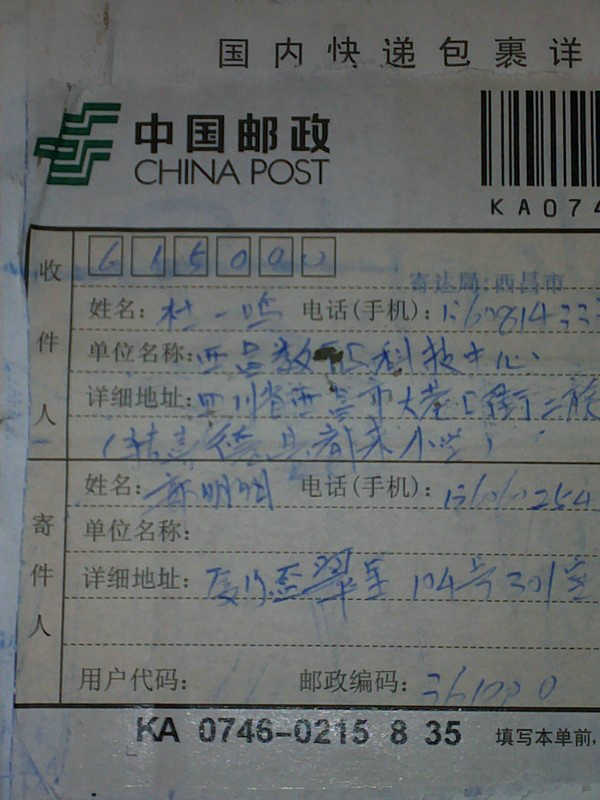 国内快递包裹详
中国邮政
CHINA POST
KA074
收件人
615000
寄达局:西昌市
姓名: 杜一鸣 电话(手机): 1360814333
单位名称: 西昌教 科技中心
详细地址: 四川省西昌市大巷口街二段
(转喜德县 小学)
寄件人
姓名: 明 电话(手机):
单位名称:
详细地址: 翠 104号301室
用户代码: 邮政编码: 361000
KA 0746-0215 8 35 填写本单前,